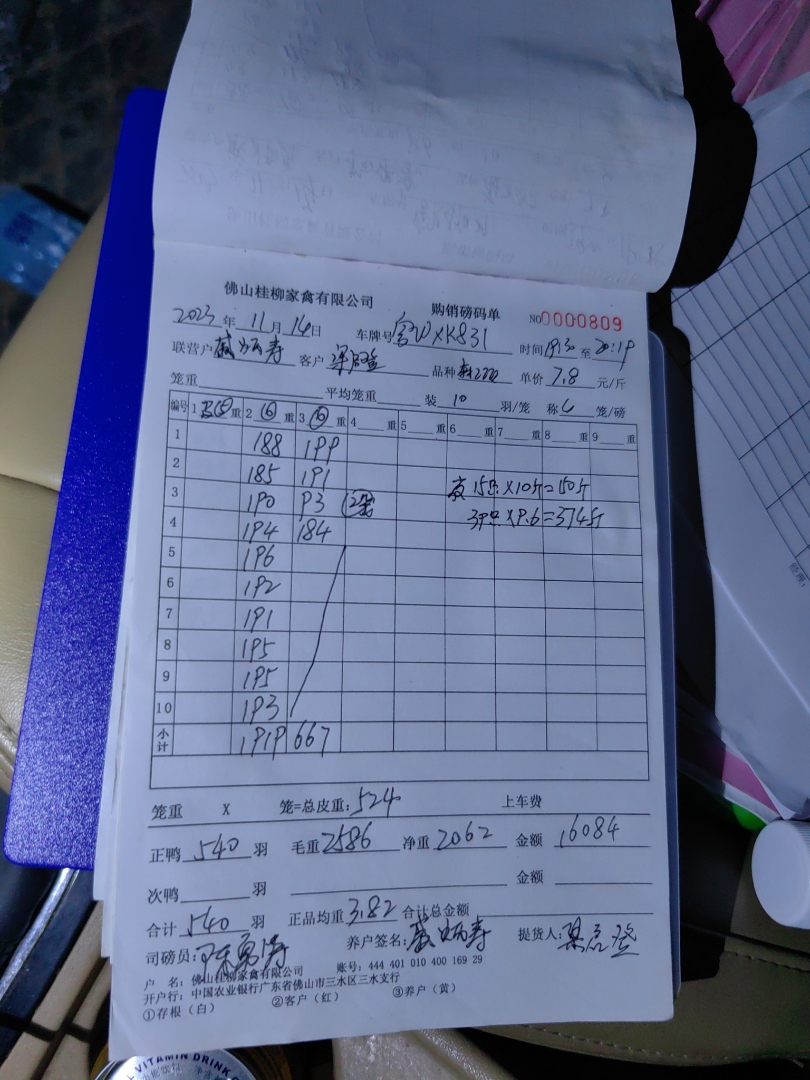 佛山桂柳家禽有限公司 购销磅码单 NO 0000809
2023年11月14日 车牌号 WXK831 时间1930至20:19
联营户 客户 品种 单价7.8元/斤
笼重 平均笼重 装10羽/笼 称6笼/磅
编号 1 重 2 ⑥ 重 3 重 4 重 5 重 6 重 7 重 8 重 9 重
1 188 199
2 185 191
3 190 93 15只×10斤=150斤
4 194 184 39只×9.6=374斤
5 196
6 192
7 191
8 195
9 195
10 193
小计 1919 667
笼重 X 笼=总皮重:524 上车费
正鸭540羽 毛重2586 净重2062 金额16084
次鸭 羽 金额
合计540羽 正品均重3.82 合计总金额
司磅员: 养户签名: 提货人:
户 名:佛山桂柳家禽有限公司 账号:444 401 010 400 169 29
开户行:中国农业银行广东省佛山市三水区三水支行
①存根(白) ②客户(红) ③养户(黄)
VITAMIN DRINK